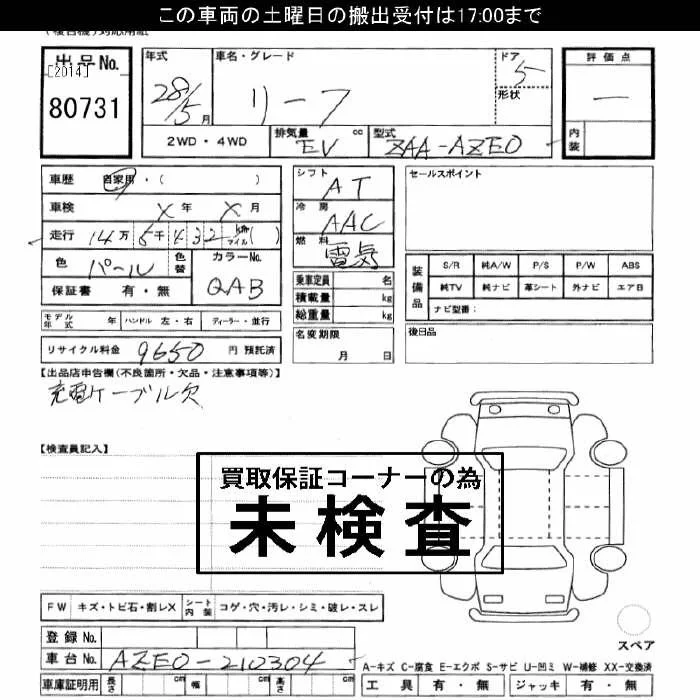 この車両の土曜日の搬出受付は17:00まで
出品No.
[2014]
80731
年式
28/5月
車名・グレード
リーフ
ドア
5
形状
評価点
—
内装
2WD・4WD
排気量 EV cc
型式 ZAA-AZE0
車歴 自家用・( )
車検 X年 X月
走行 14万5千432 km マイル ( )
色 パール
色替
カラーNo. QAB
保証書 有・無
シフト AT
冷房 AAC
燃料 電気
乗車定員 名
積載量 kg
総重量 kg
名変期限
月 日
セールスポイント
装備品
S/R 純A/W P/S P/W ABS
純TV 純ナビ 革シート 外ナビ エアB
ナビ型番:
後日品
モデル年式 年 ハンドル 左・右 ディーラー・並行
リサイクル料金 9650 円 預託済
【出品店申告欄(不良箇所・欠品・注意事項等)】
充電ケーブル欠
【検査員記入】
買取保証コーナーの為
未検査
FW キズ・トビ石・割レX シート内装 コゲ・穴・汚レ・シミ・破レ・スレ
登録No.
車台No. AZE0-210304
車庫証明用 長さ cm 幅 cm 高さ cm
スペア
A-キズ C-腐食 E-エクボ S-サビ U-凹ミ W-補修 XX-交換済
工具 有・無 ジャッキ 有・無